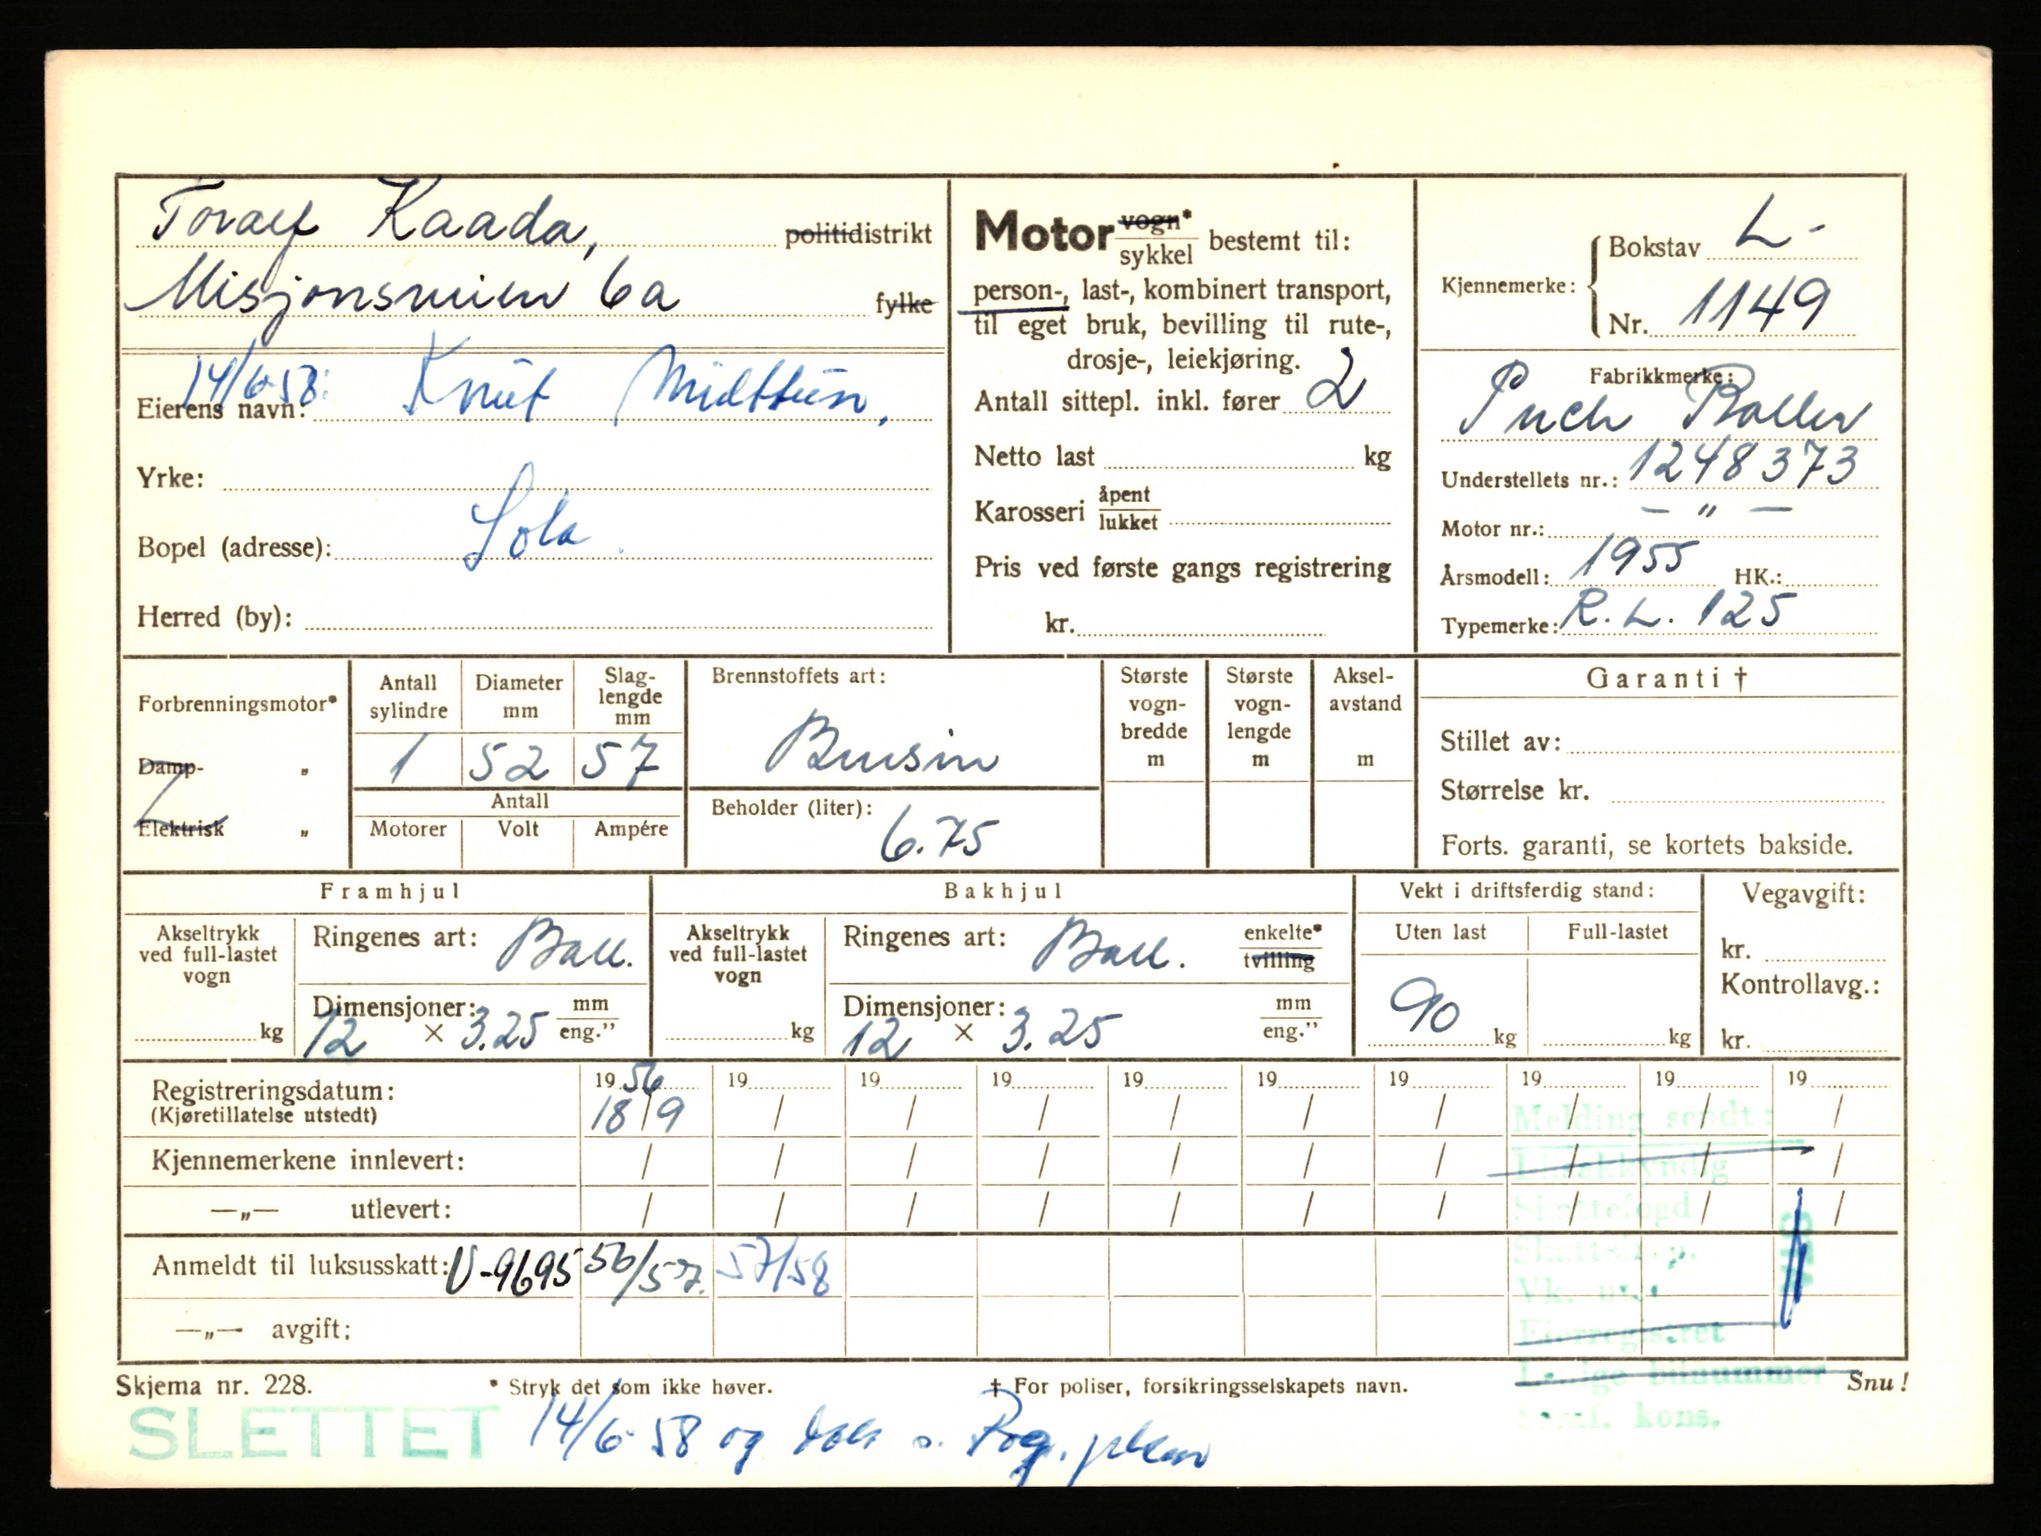 Toralf Kaada, politidistrikt
Misjonsveien 6a fylke
14/6-58: Knut Midttun,
Eierens navn:
Yrke:
Bopel (adresse): Sola.
Herred (by):
Motor vogn* / sykkel bestemt til:
person-, last-, kombinert transport,
til eget bruk, bevilling til rute-,
drosje-, leiekjøring.
Antall sittepl. inkl. fører 2
Netto last kg
Karosseri åpent / lukket
Pris ved første gangs registrering
kr.
Kjennemerke: Bokstav L-
Nr. 1149
Fabrikkmerke:
Puch Roller
Understellets nr.: 1248373
Motor nr.: — " —
Årsmodell: 1955 HK.:
Typemerke: R.L. 125
Forbrenningsmotor*
Damp- "
Elektrisk "
Antall sylindre Diameter mm Slaglengde mm
1 52 57
Antall
Motorer Volt Ampére
Brennstoffets art:
Bensin
Beholder (liter):
6.75
Største vognbredde m
Største vognlengde m
Akselavstand m
Garanti †
Stillet av:
Størrelse kr.
Forts. garanti, se kortets bakside.
Framhjul
Akseltrykk ved full-lastet vogn kg
Ringenes art: Ball.
Dimensjoner: mm
12 × 3.25 eng."
Bakhjul
Akseltrykk ved full-lastet vogn kg
Ringenes art: Ball. enkelte* / tvilling
Dimensjoner: mm
12 × 3.25 eng."
Vekt i driftsferdig stand:
Uten last Full-lastet
90 kg kg
Vegavgift:
kr.
Kontrollavg.:
kr.
Registreringsdatum: 1956 19 19 19 19 19 19 19 19 19
(Kjøretillatelse utstedt) 18/9 / / / / / / / / /
Kjennemerkene innlevert: / / / / / / / / / /
—„— utlevert: / / / / / / / / / /
Anmeldt til luksusskatt: U-9695 56/57. 57/58
—„— avgift:
Melding sendt:
Skattefogd
Eierregistret
Ledige bilnummer
kons.
Skjema nr. 228. * Stryk det som ikke høver. † For poliser, forsikringsselskapets navn. Snu!
SLETTET 14/6-58 og